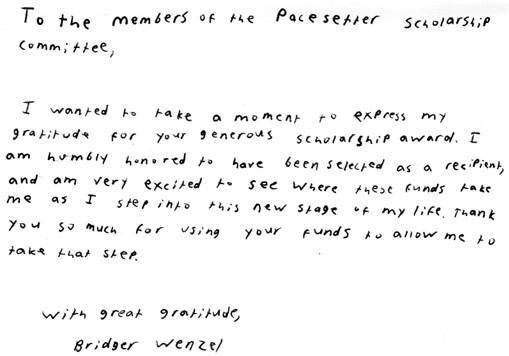 To the members of the Pacesetter Scholarship
committee,
I wanted to take a moment to express my
gratitude for your generous scholarship award. I
am humbly honored to have been selected as a recipient,
and am very excited to see where these funds take
me as I step into this new stage of my life. Thank
you so much for using your funds to allow me to
take that step.
With great gratitude,
Bridger Wenzel